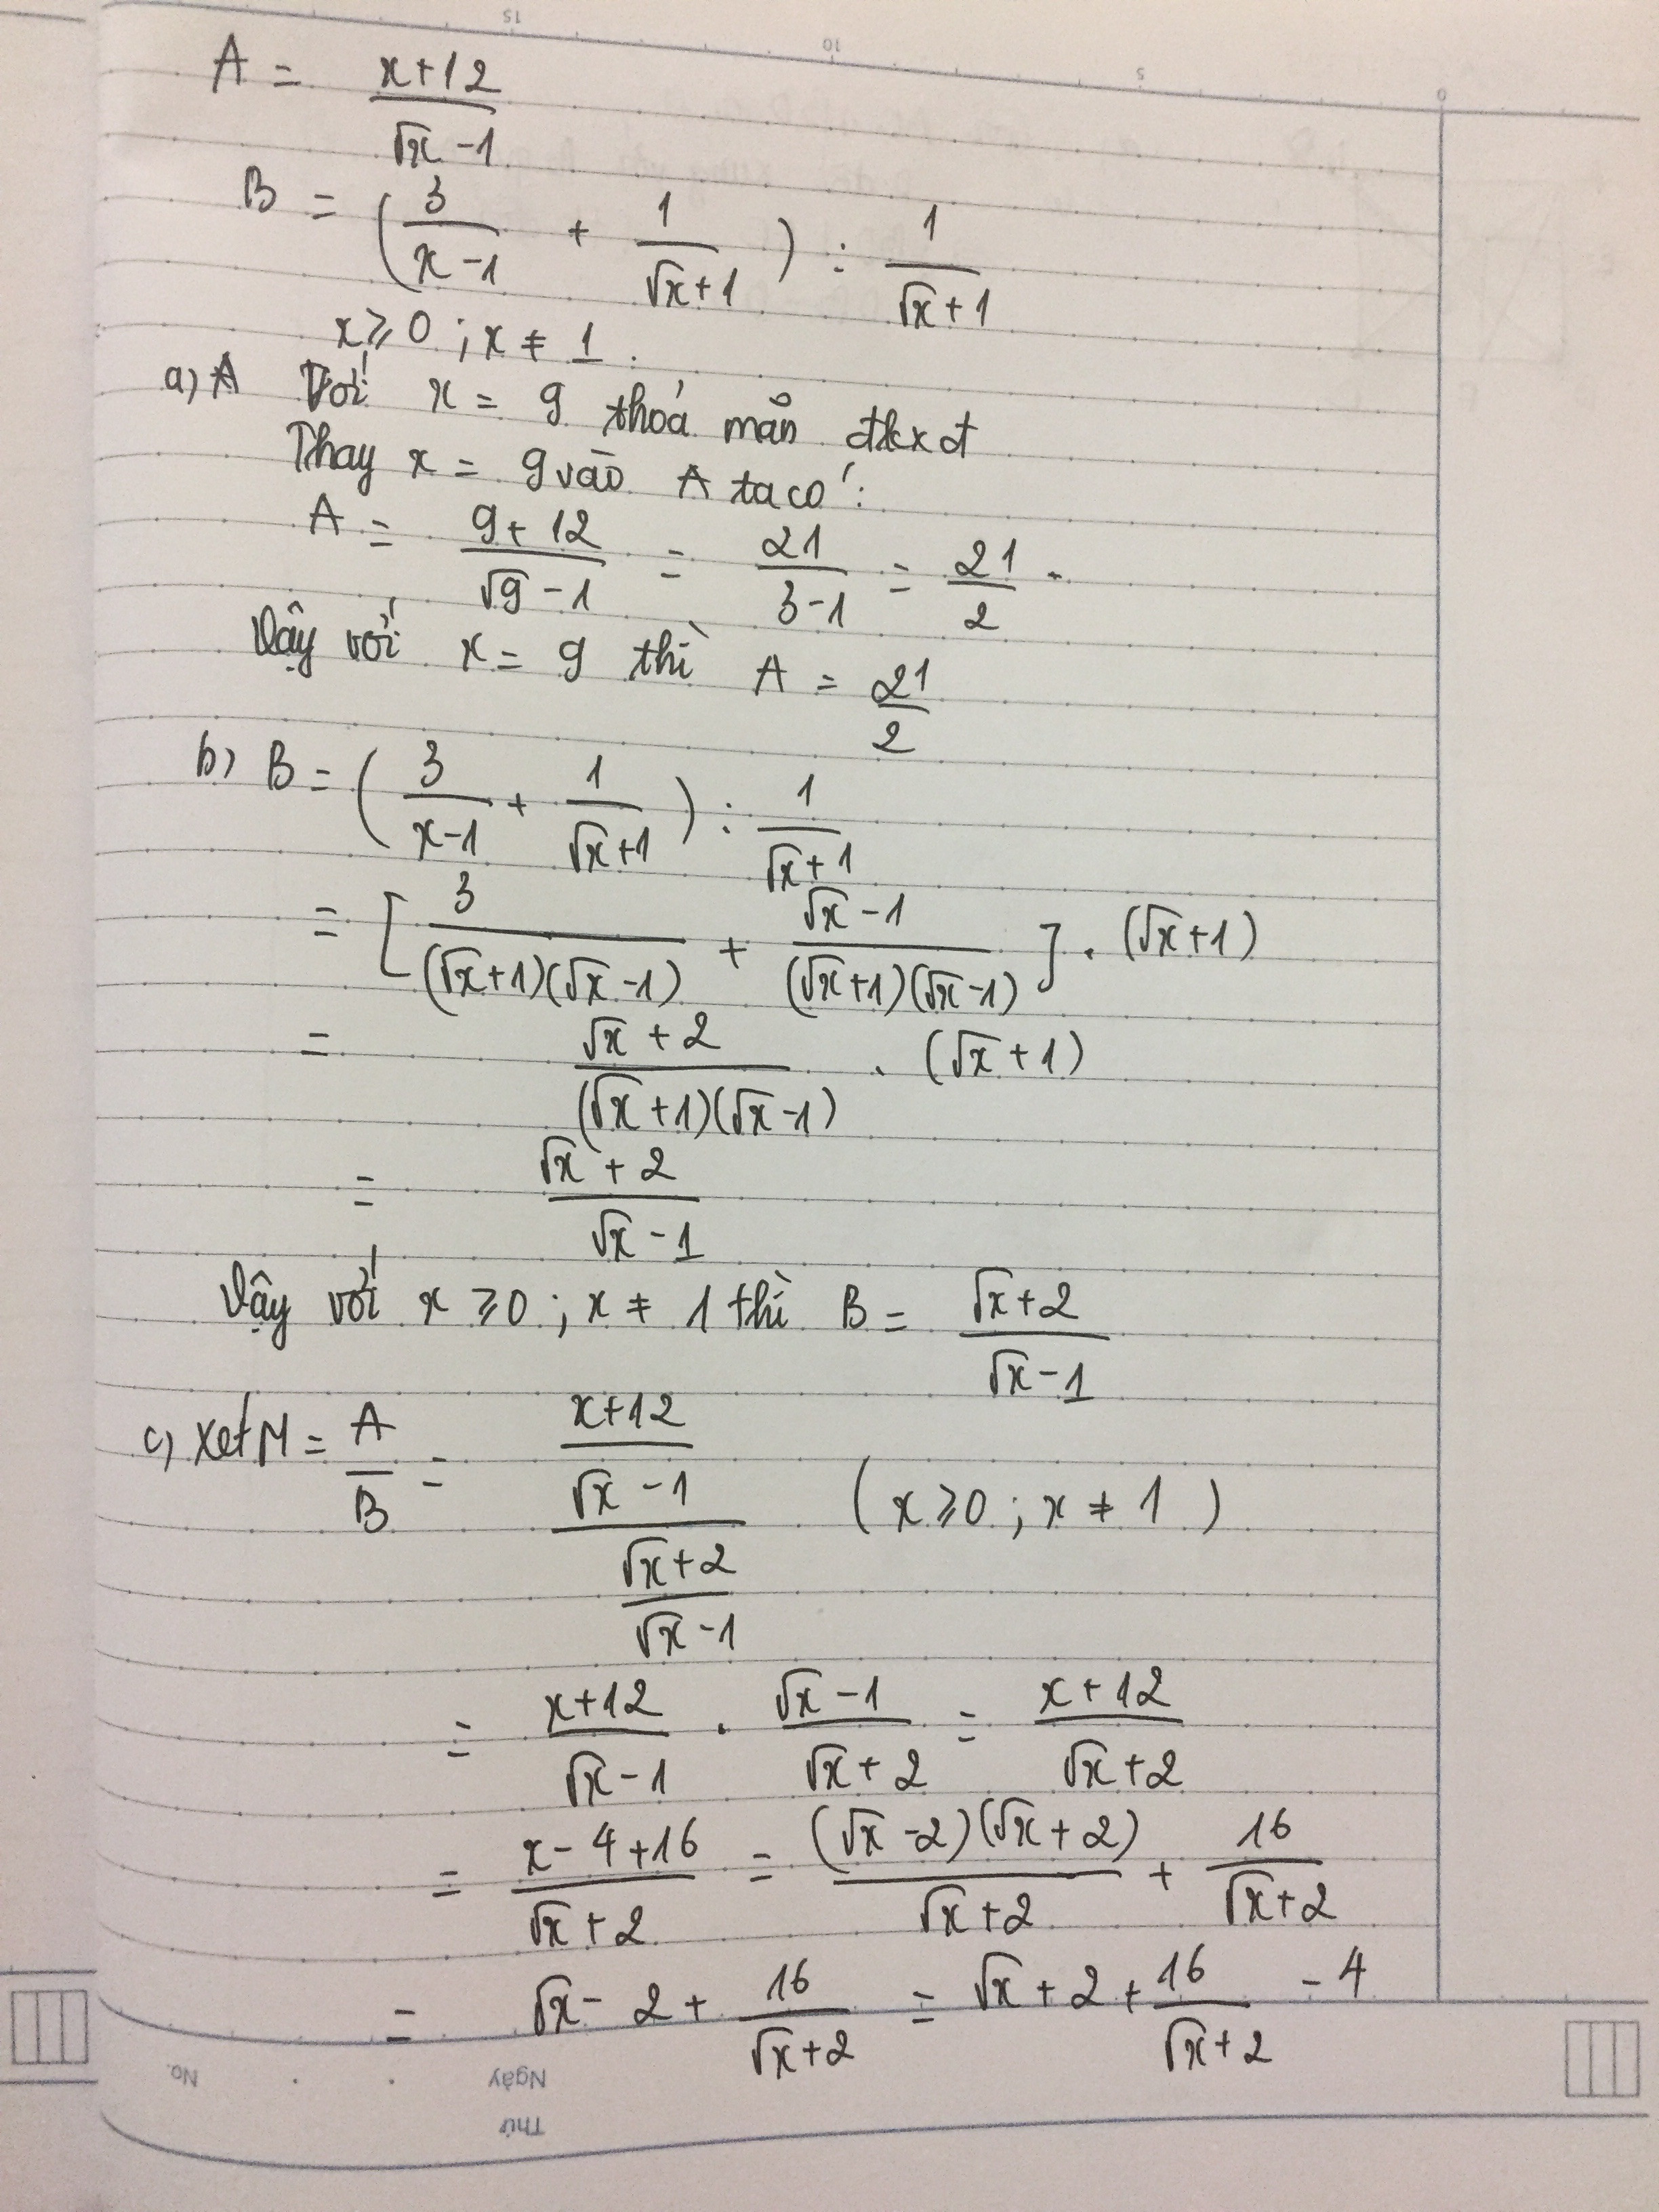 15 10 5 0
A = x+12 / √x -1
B = ( 3 / x-1 + 1 / √x+1 ) : 1 / √x+1
x ≥ 0 ; x ≠ 1 .
a) A Với x = 9 thoả mãn đkxđ
Thay x = 9 vào A ta có :
A = 9+12 / √9 -1 = 21 / 3-1 = 21 / 2 .
Vậy với x = 9 thì A = 21 / 2
b) B = ( 3 / x-1 + 1 / √x+1 ) : 1 / √x+1
= [ 3 / (√x+1)(√x-1) + √x-1 / (√x+1)(√x-1) ] . (√x+1)
= √x+2 / (√x+1)(√x-1) . (√x+1)
= √x+2 / √x-1
Vậy với x ≥ 0 ; x ≠ 1 thì B = √x+2 / √x-1
c) Xét M = A / B = x+12 / √x-1 / √x+2 / √x-1 ( x ≥ 0 ; x ≠ 1 )
= x+12 / √x-1 . √x-1 / √x+2 = x+12 / √x+2
= x-4+16 / √x+2 = (√x-2)(√x+2) / √x+2 + 16 / √x+2
= √x-2 + 16 / √x+2 = √x+2 + 16 / √x+2 - 4
No. Ngày
Thứ